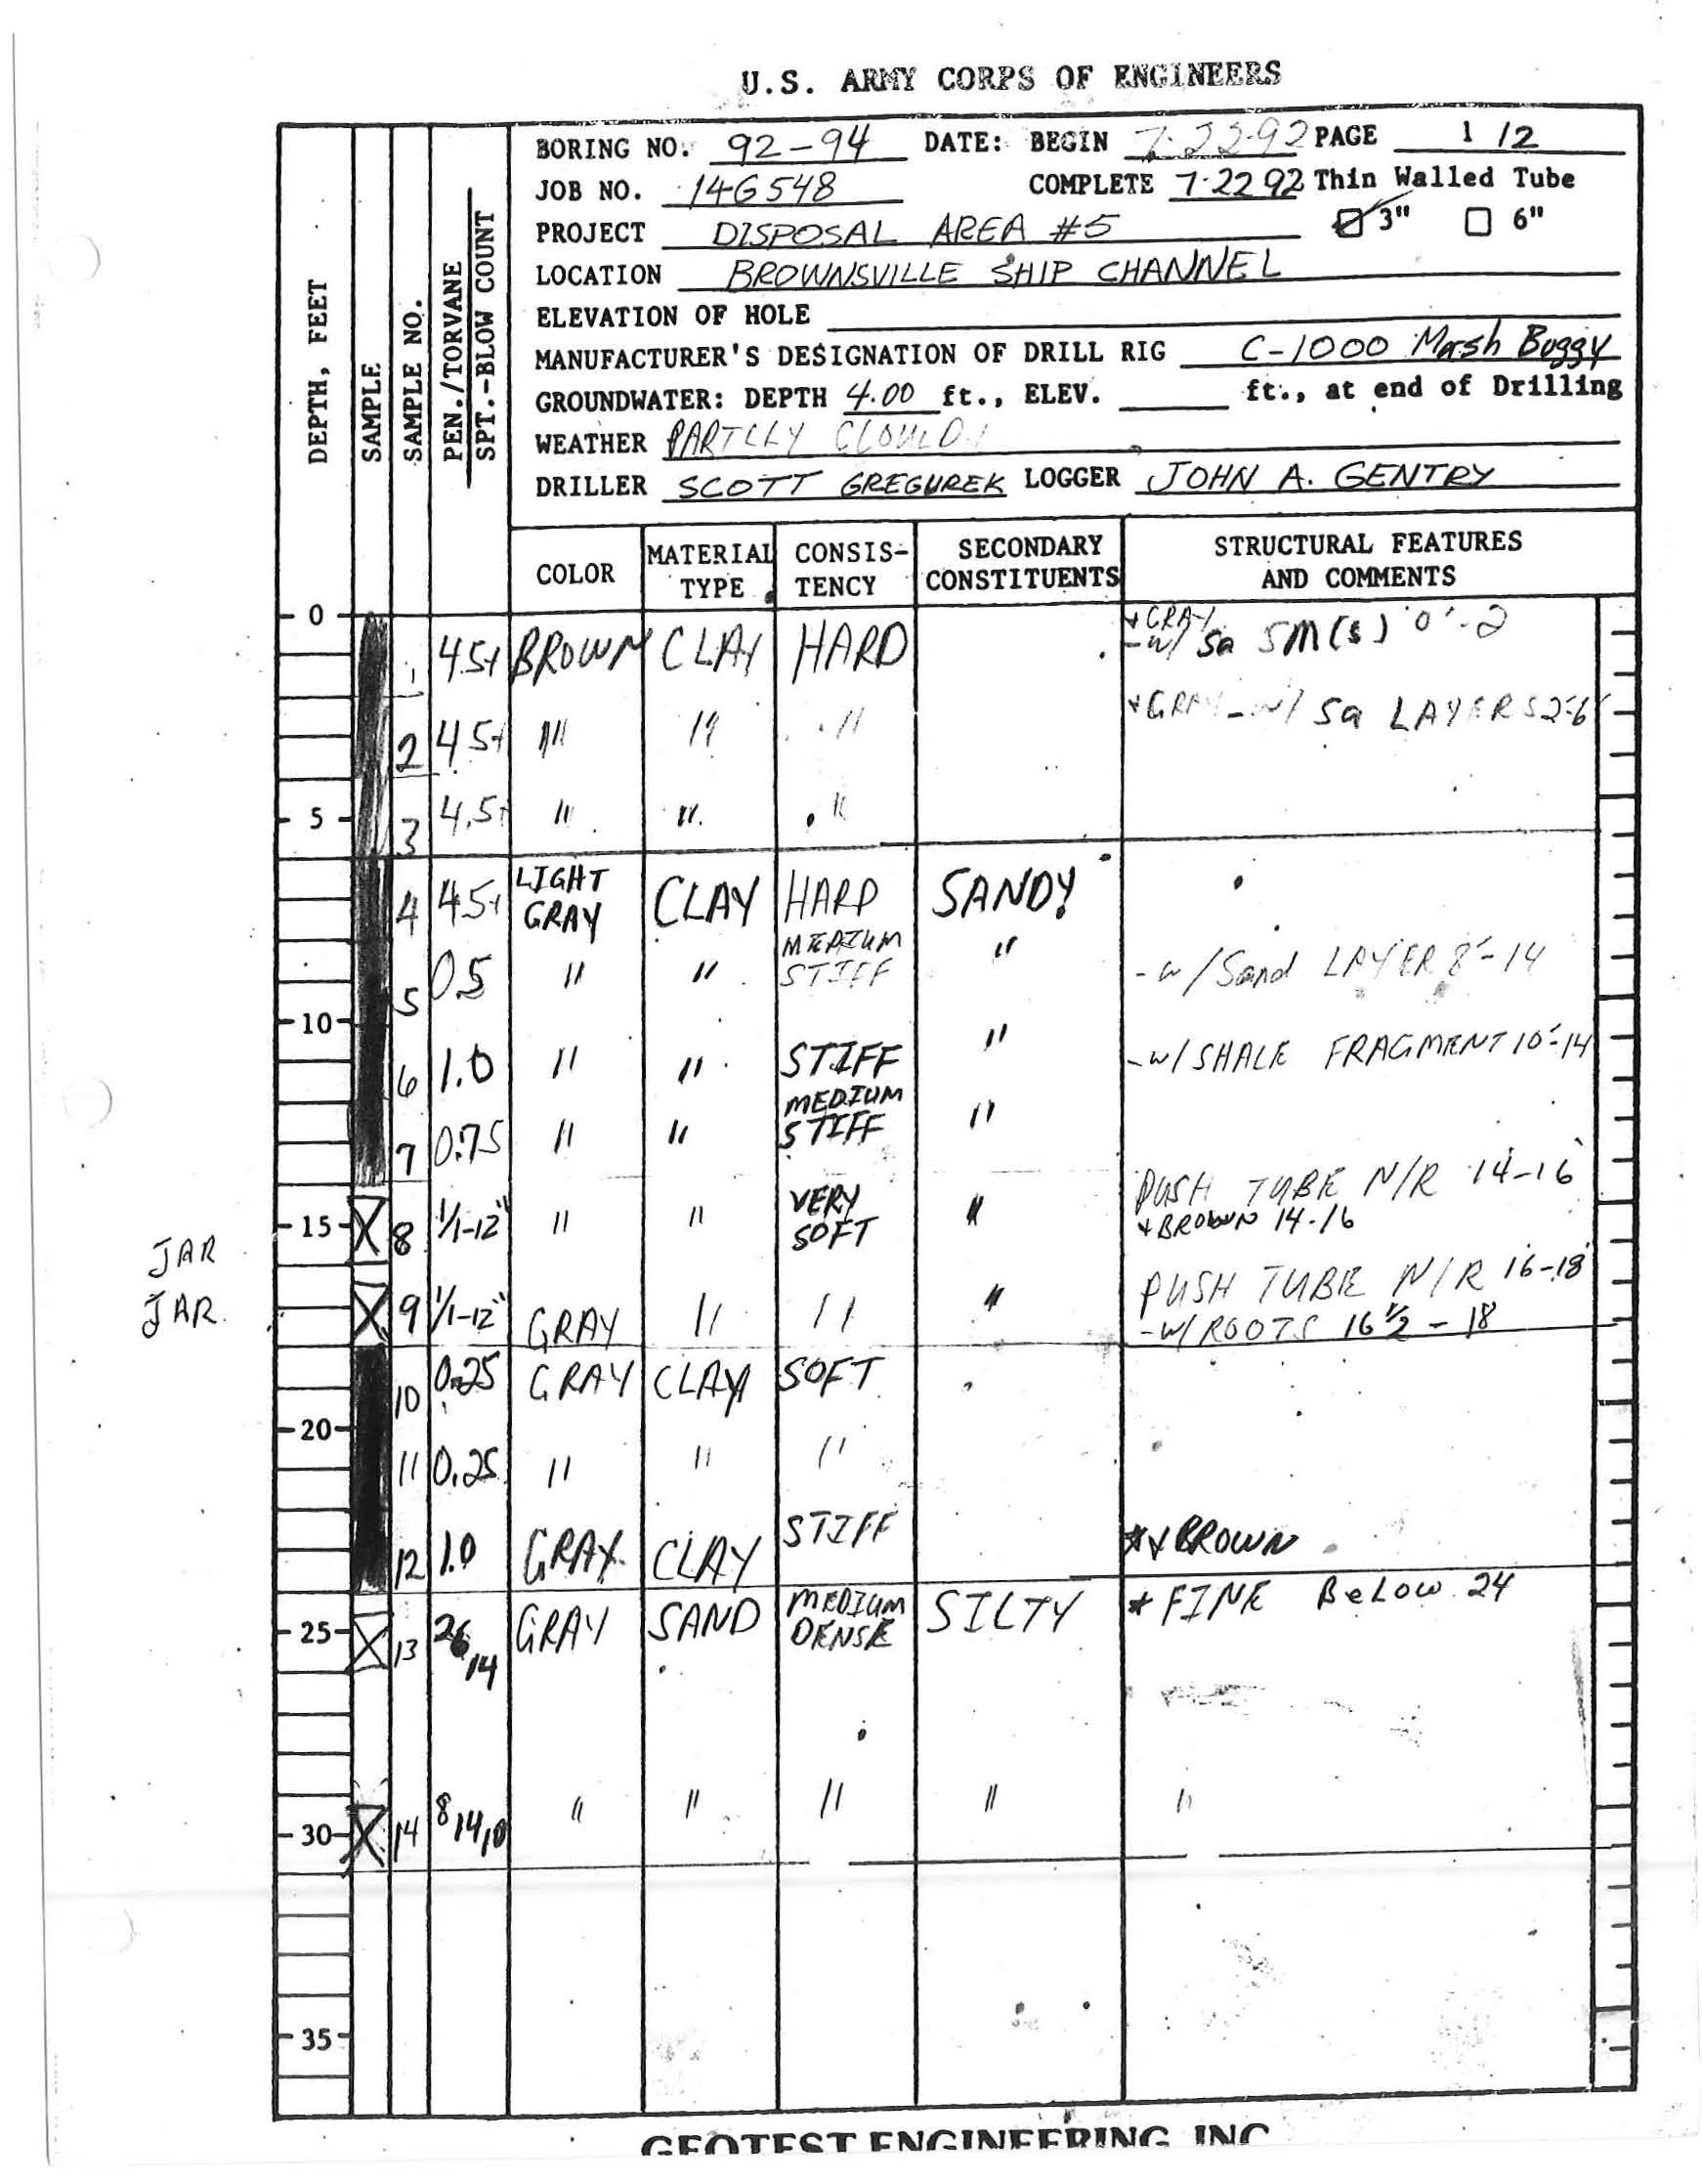 U.S. ARMY CORPS OF ENGINEERS
DEPTH, FEET
SAMPLE
SAMPLE NO.
PEN./TORVANE
SPT.-BLOW COUNT
BORING NO. 92-94 DATE: BEGIN 7-22-92 PAGE 1 /2
JOB NO. 14G548 COMPLETE 7-22 92 Thin Walled Tube
PROJECT DISPOSAL AREA #5 3" 6"
LOCATION BROWNSVILLE SHIP CHANNEL
ELEVATION OF HOLE
MANUFACTURER'S DESIGNATION OF DRILL RIG C-1000 Marsh Buggy
GROUNDWATER: DEPTH 4.00 ft., ELEV. ft., at end of Drilling
WEATHER PARTLLY
DRILLER SCOTT GREGUREK LOGGER JOHN A. GENTRY
COLOR MATERIAL TYPE CONSIS-TENCY SECONDARY CONSTITUENTS STRUCTURAL FEATURES AND COMMENTS
0
+GRAY
1 4.5+ BROWN CLAY HARD -w/ Sa SM(s) 0'-2
2 4.5+ " " " +GRAY -w/ Sa LAYERS 2'-6'
5 3 4.5+ " " "
4 4.5+ LIGHT GRAY CLAY HARD SANDY
5 0.5 " " MEDIUM STIFF " -w/Sand LAYER 8'-14
10
6 1.0 " " STIFF " -w/SHALE FRAGMENT 10'-14
7 0.75 " " MEDIUM STIFF "
PUSH TUBE N/R 14-16
JAR 15 8 1/1-12" " " VERY SOFT " +BROWN 14-16
PUSH TUBE N/R 16-18'
JAR. 9 1/1-12" GRAY " " " -w/ROOTS 16 1/2 - 18
10 0.25 GRAY CLAY SOFT
20
11 0.25 " " "
12 1.0 GRAY CLAY STIFF *+BROWN
25 13 26/14 GRAY SAND MEDIUM DENSE SILTY * FINE BeLow 24
30 14 8/14/10 " " " " "
35
GEOTEST ENGINEERING, INC